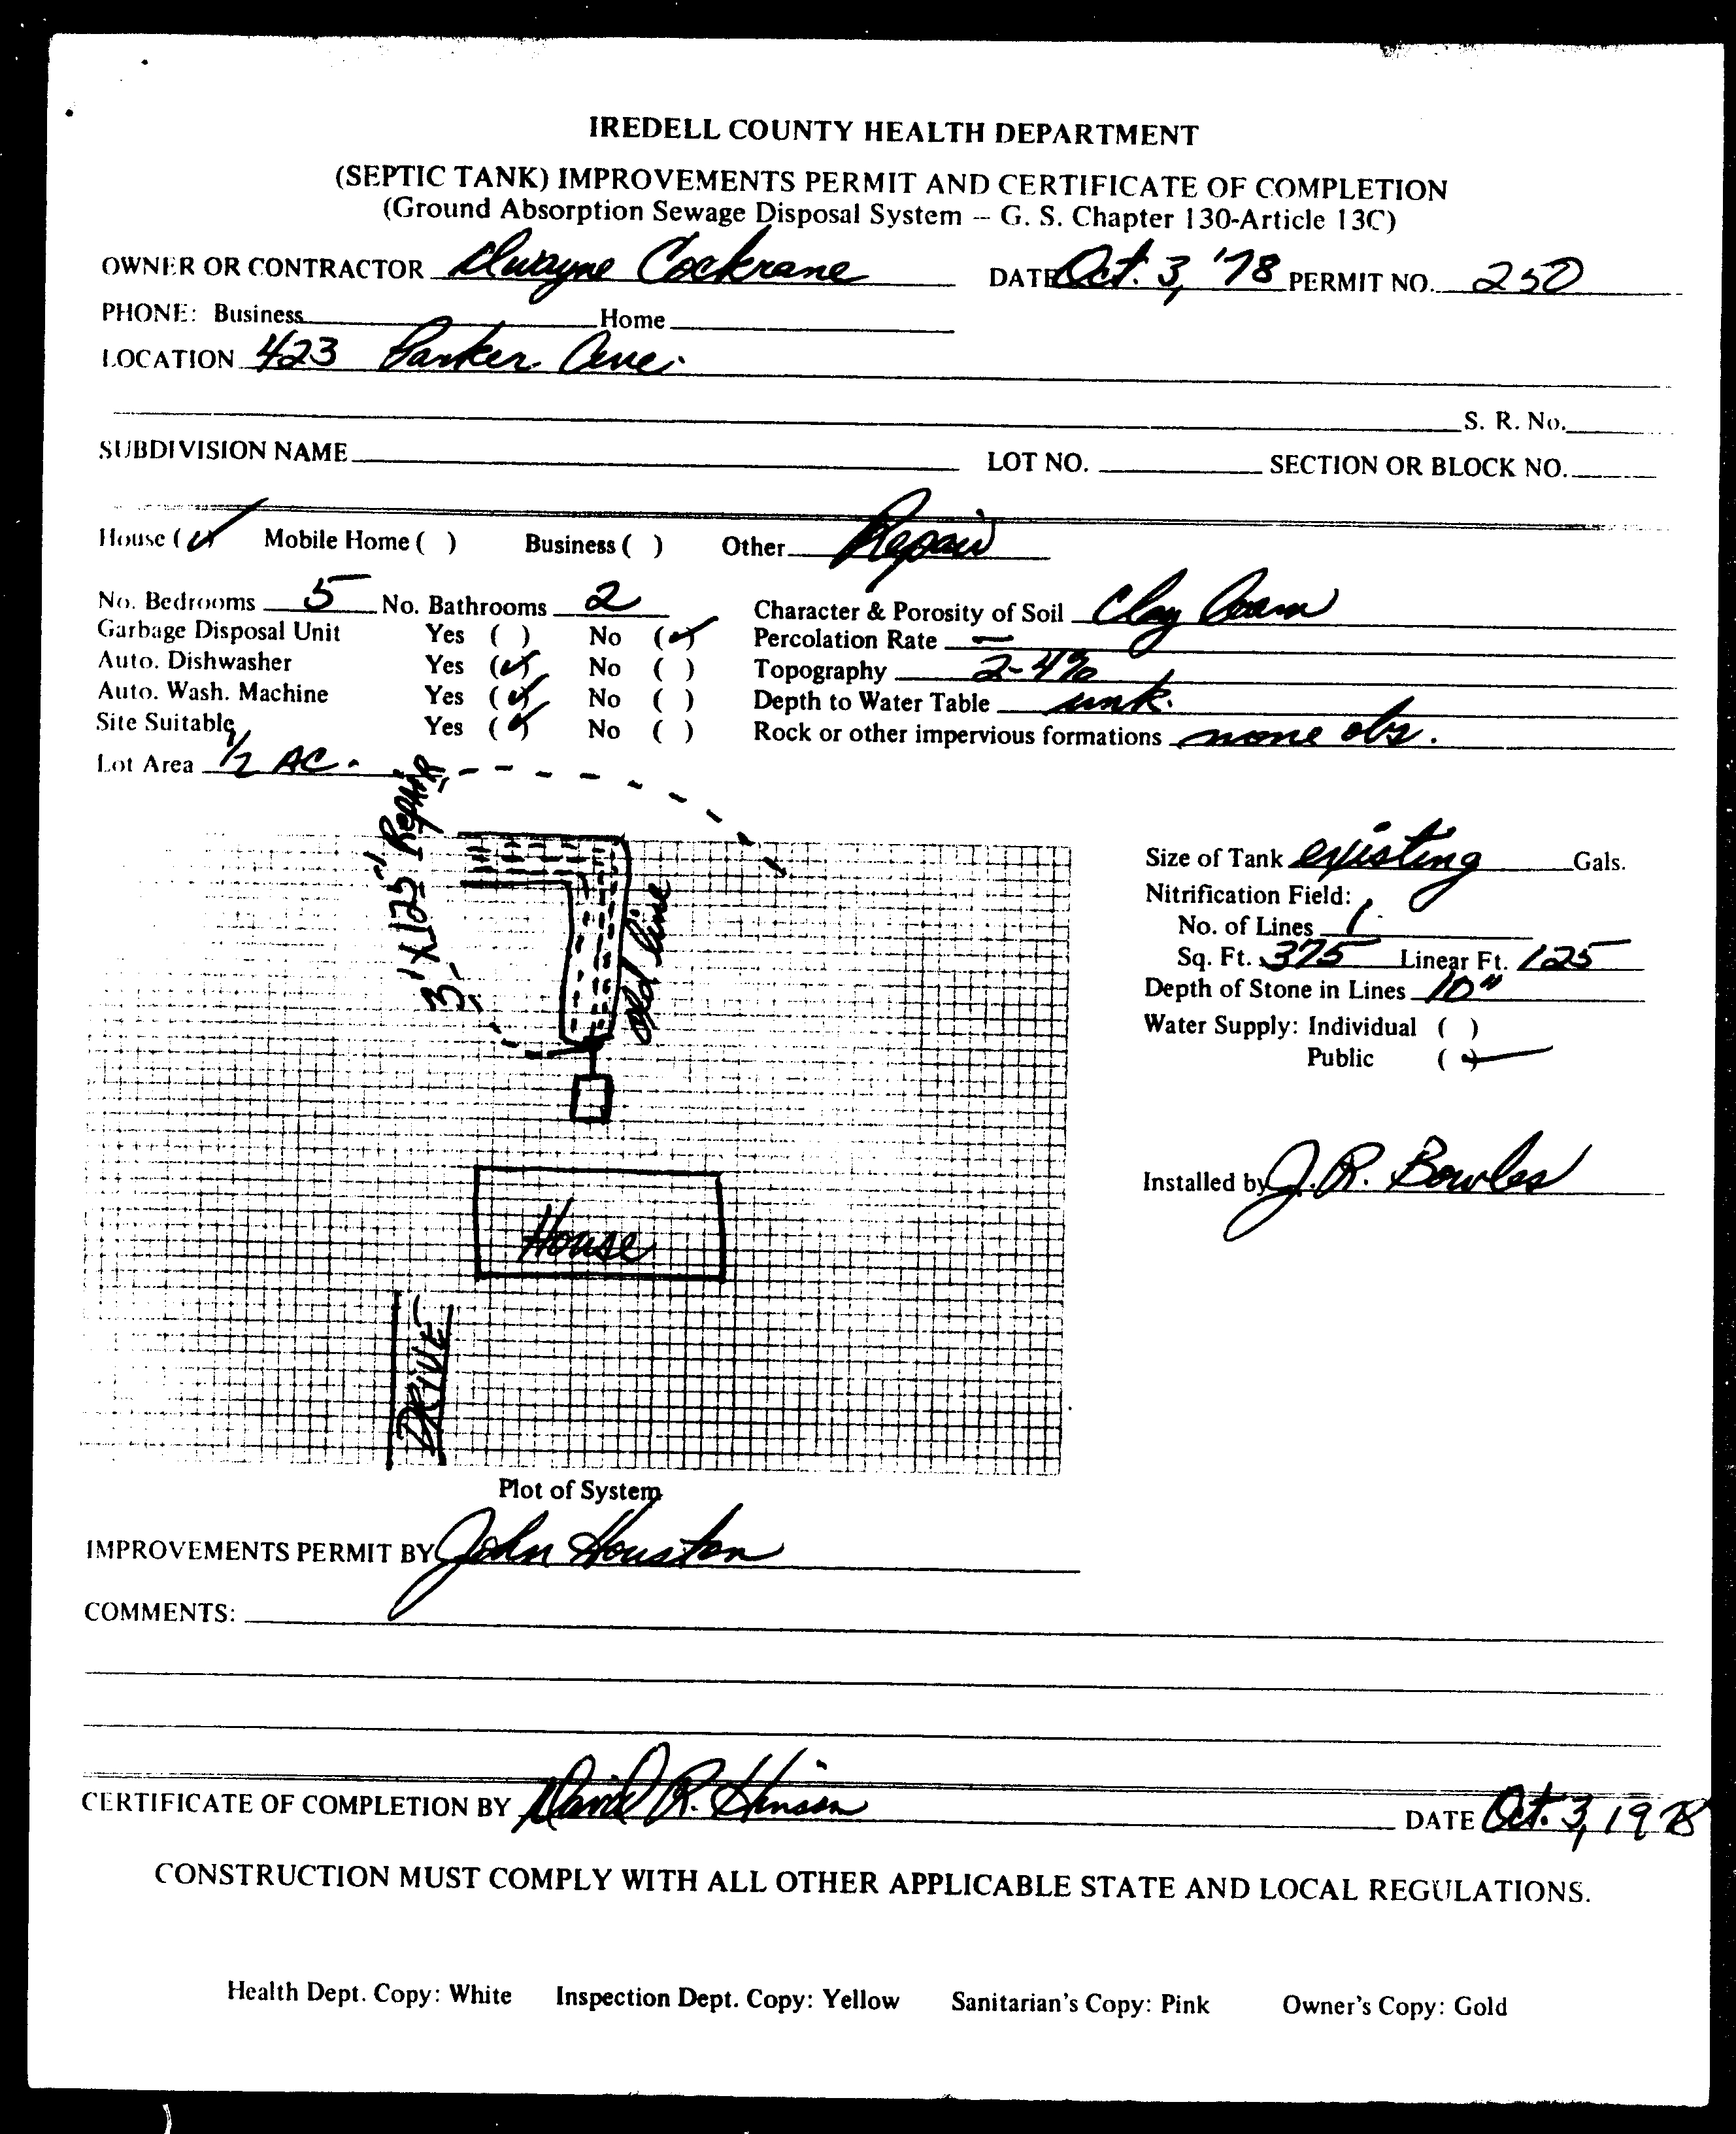 IREDELL COUNTY HEALTH DEPARTMENT
(SEPTIC TANK) IMPROVEMENTS PERMIT AND CERTIFICATE OF COMPLETION
(Ground Absorption Sewage Disposal System -- G. S. Chapter 130-Article 13C)
OWNER OR CONTRACTOR Dwayne Cockrane DATE Oct. 3, '78 PERMIT NO. 250
PHONE: Business Home
LOCATION 423 Parker Ave.
S. R. No.
SUBDIVISION NAME LOT NO. SECTION OR BLOCK NO.
House (✓) Mobile Home ( ) Business ( ) Other Repair
No. Bedrooms 5 No. Bathrooms 2 Character & Porosity of Soil Clay Loam
Garbage Disposal Unit Yes ( ) No (✓) Percolation Rate —
Auto. Dishwasher Yes (✓) No ( ) Topography 2-4%
Auto. Wash. Machine Yes (✓) No ( ) Depth to Water Table unk.
Site Suitable Yes (✓) No ( ) Rock or other impervious formations none obs.
Lot Area 1/2 AC.
3'X125' Repair
old line
House
DRIVE
Size of Tank existing Gals.
Nitrification Field:
No. of Lines 1
Sq. Ft. 375 Linear Ft. 125
Depth of Stone in Lines 10"
Water Supply: Individual ( )
Public (✓)
Installed by J. R. Bowles
Plot of System
IMPROVEMENTS PERMIT BY John Houston
COMMENTS:
CERTIFICATE OF COMPLETION BY David R. Hinson DATE Oct. 3, 1978
CONSTRUCTION MUST COMPLY WITH ALL OTHER APPLICABLE STATE AND LOCAL REGULATIONS.
Health Dept. Copy: White Inspection Dept. Copy: Yellow Sanitarian's Copy: Pink Owner's Copy: Gold